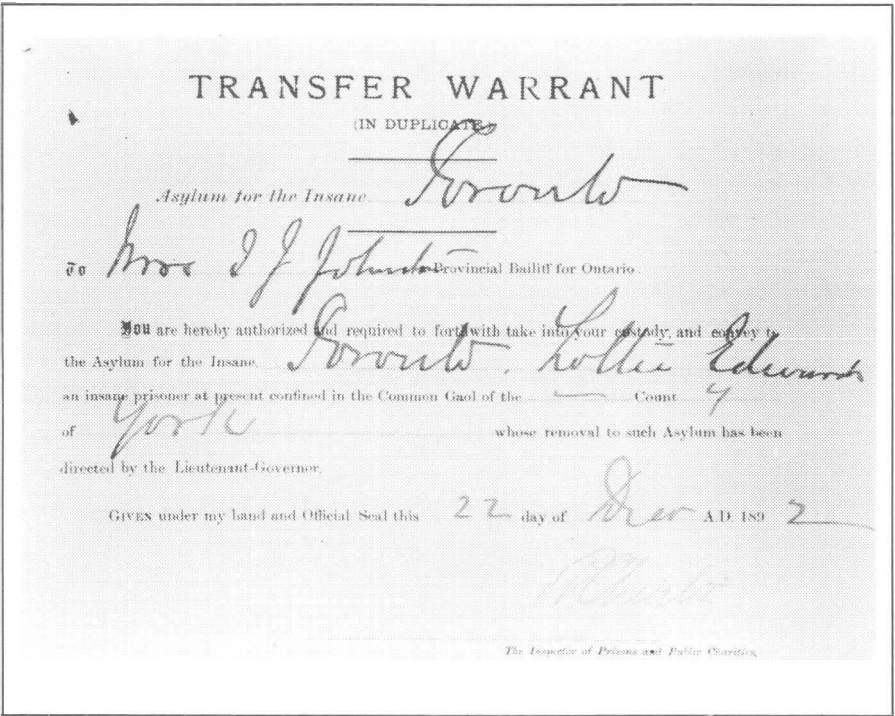 TRANSFER WARRANT
(IN DUPLICATE.)
Asylum for the Insane. Toronto
To Mrs J J Johnston Provincial Bailiff for Ontario.
You are hereby authorized and required to forthwith take into your custody, and convey to
the Asylum for the Insane, Toronto, Lottie Edwards
an insane prisoner at present confined in the Common Gaol of the — County
of York whose removal to such Asylum has been
directed by the Lieutenant-Governor.
GIVEN under my hand and Official Seal this 22 day of Dec A.D. 1892
The Inspector of Prisons and Public Charities,